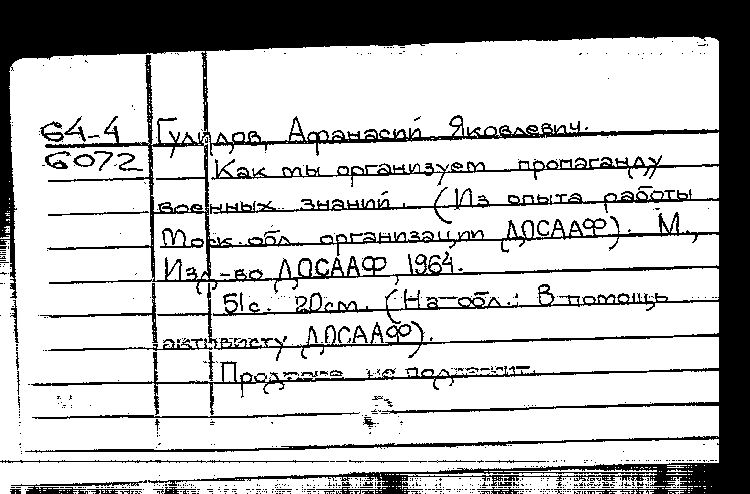 64-4 Гулидов, Афанасий Яковлевич.
6072 Как мы организуем пропаганду
военных знаний. (Из опыта работы
Моск. обл. организации ДОСААФ). М.,
Изд-во ДОСААФ, 1964.
51с. 20см. (На обл.: В помощь
активисту ДОСААФ).
Продаже не подлежит.